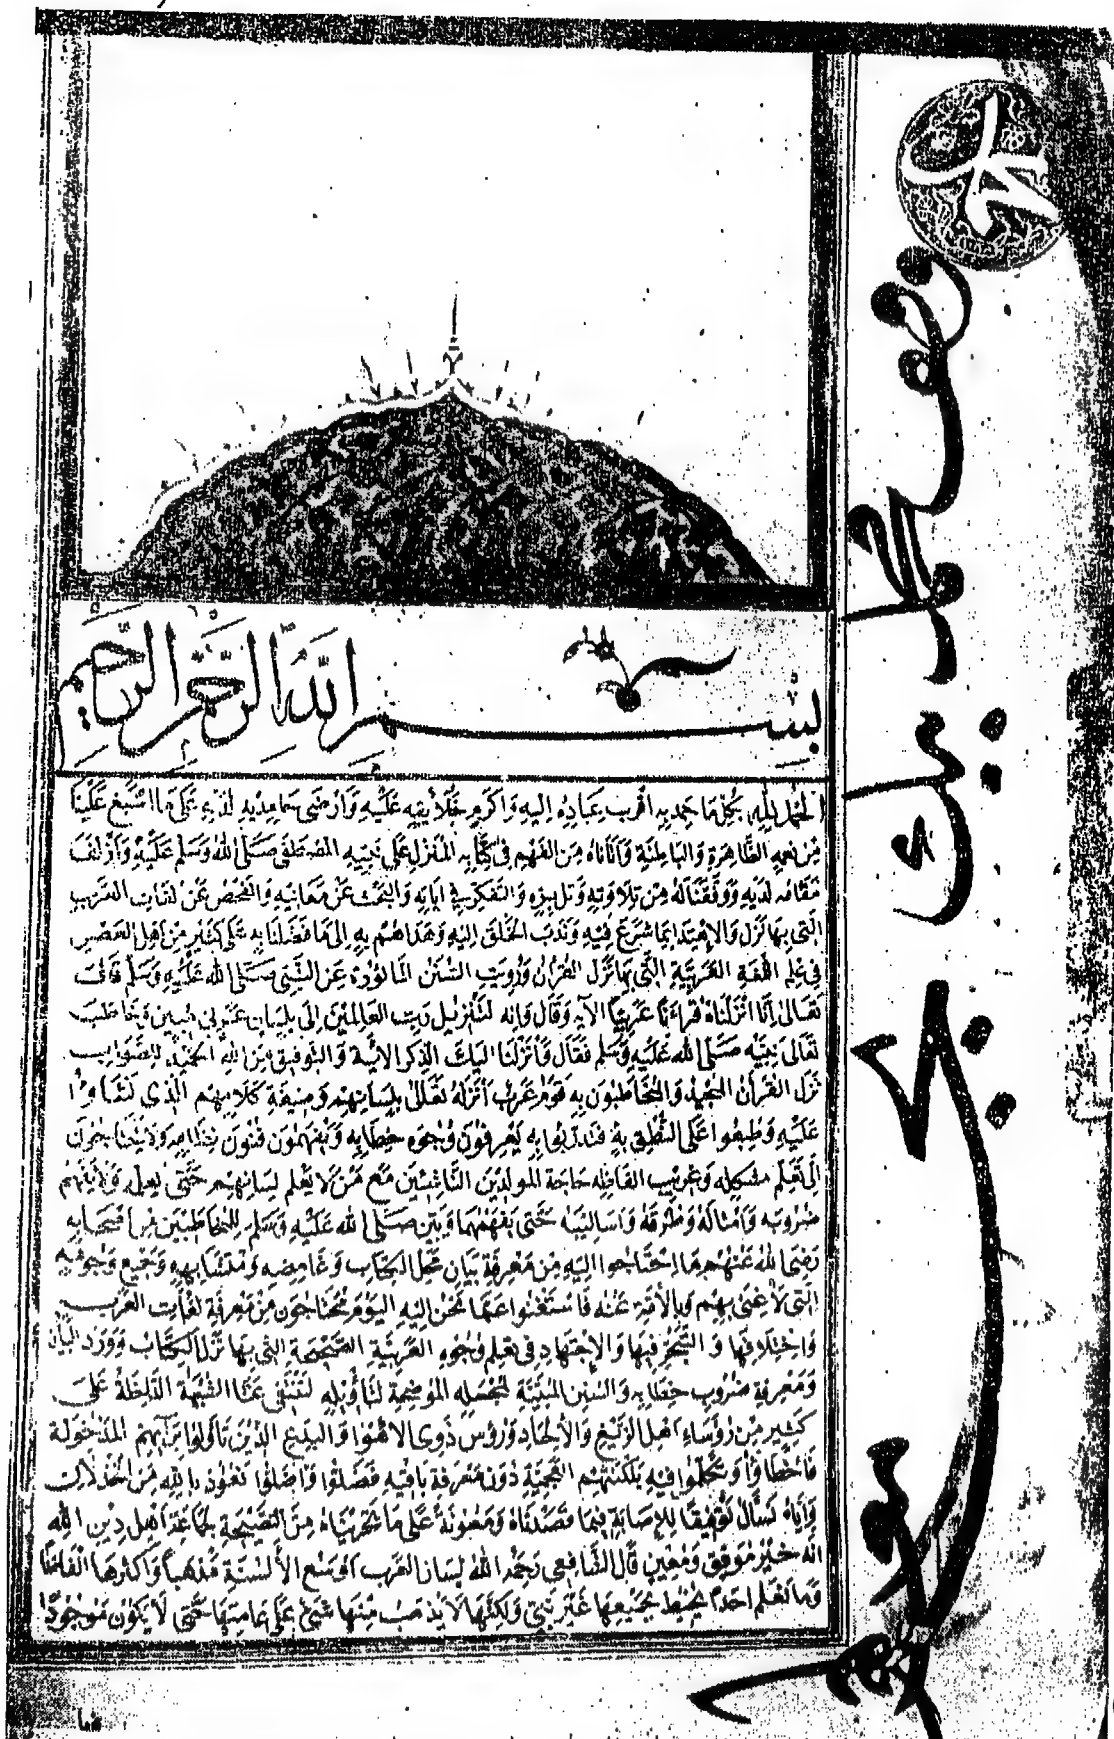 بسم الله الرحمن الرحيم
الحمد لله بكل ما حمده به أقرب عباده إليه وأكرم خلائقه عليه وأرضى حامديه لديه على ما اسبغ علينا
من نعمه الظاهرة والباطنة وآتاناه من الفهم في كتابه المنزل على نبيه المصطفى صلى الله وسلم عليه وأزلف
مقامه لديه ووفقنا له من تلاوته وتدبره والتفكر في آياته والبحث عن معانيه والفحص عن لغات العرب
التي بها نزل والاهتداء بما شرع فيه وندب الخلق إليه وهداهم به إلى ما فضلنا به على كثير من أهل العصر
في علم اللغة العربية التي بها نزل القرآن ورويت السنن الماثورة عن النبي صلى الله عليه وسلم قال
تعالى إنا أنزلناه قرآنا عربيا الآية وقال وإنه لتنزيل رب العالمين إلى بلسان عربي مبين وخاطب
تعالى نبيه صلى الله عليه وسلم فقال وأنزلنا إليك الذكر الآية والتوفيق من الله المجيد للصواب
نزل القرآن المجيد والمخاطبون به قوم عرب أنزله تعالى بلسانهم وصيغة كلامهم الذي نشاوا
عليه وطبعوا على النطق به فتدربوا به يعرفون وجوه خطابه ويفهمون فنون نظامه ولا يحتاجون
إلى تعلم مشكله وغريب الفاظه حاجة المولدين الناشئين مع من لا يعلم لسانهم حتى يعلمه ولا يفهم
ضروبه وأمثاله وطرقه وأساليبه حتى يفهمها وبين صلى الله عليه وسلم للمخاطبين من أصحابه
رضي الله عنهم ما احتاجوا إليه من معرفة بيان مجمل الكتاب وغامضه ومتشابهه وجميع وجوهه
التي لا غنى بهم وبالأمة عنه فاستغنوا عما نحن إليه اليوم محتاجون من معرفة لغات العرب
واختلافها والتبحر فيها والاجتهاد في تعلم وجوه العربية الصحيحة التي بها نزل الكتاب وورد البيان
ومعرفة ضروب خطابه والسنن المبينة لمجمله الموضحة لتأويله لتنتفي عنا الشبهة الداخلة على
كثير من رؤساء أهل الزيغ والإلحاد ورؤس ذوي الأهوا والبدع الذين تأولوا بآرائهم المدخولة
فأخطاوا وتكلموا فيه بلكنتهم العجمية دون معرفة ثاقبة فضلوا وأضلوا نعوذ بالله من الخذلان
وإياه نسأل توفيقا للإصابة فيما قصدناه ومعونة على ما تحريناه من النصيحة لجماعة أهل دين الله
انه خير موفق ومعين قال الشافعي رحمه الله لسان العرب أوسع الألسنة مذهبا وأكثرها الفاظا
وما نعلم احدا يحيط بجميعها غير نبي ولكنها لا يذهب منها شئ على عامتها حتى لا يكون موجودا
محمد